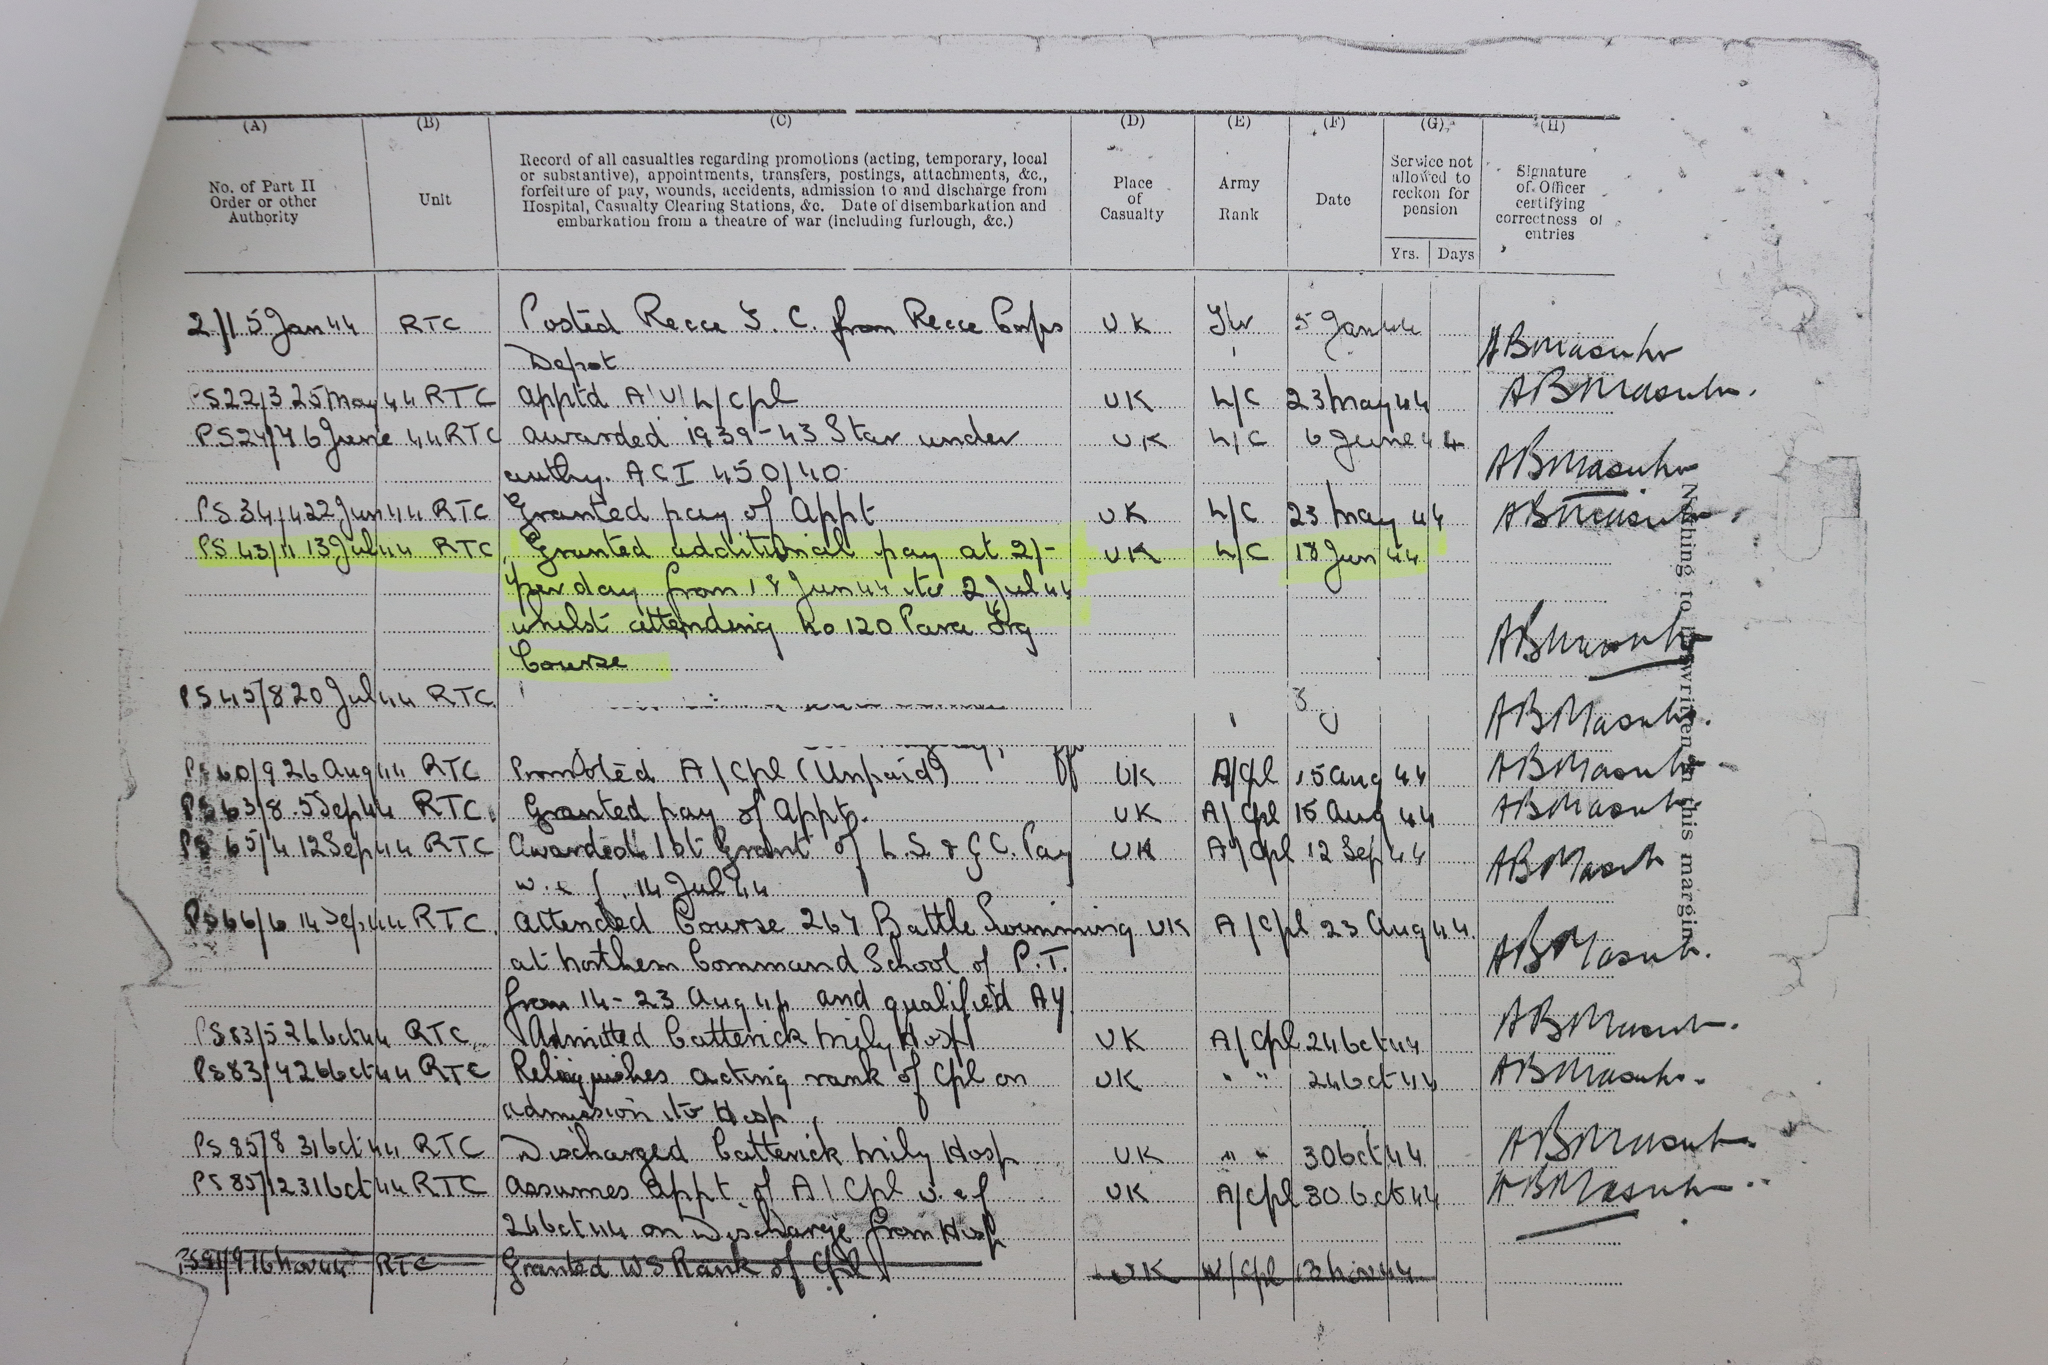 (A) (B) (C) (D) (E) (F) (G) (H)
No. of Part II Order or other Authority
Unit
Record of all casualties regarding promotions (acting, temporary, local
or substantive), appointments, transfers, postings, attachments, &c.,
forfeiture of pay, wounds, accidents, admission to and discharge from
Hospital, Casualty Clearing Stations, &c. Date of disembarkation and
embarkation from a theatre of war (including furlough, &c.)
Place of Casualty
Army Rank
Date
Service not allowed to reckon for pension
Yrs. Days
Signature of Officer certifying correctness of entries
2/1 5 Jan 44 RTC Posted Recce T. C. from Recce Corps UK 5 Jan 44
Depot
PS22/3 25 May 44 RTC appt'd A/U/L/Cpl UK L/C 23 May 44
6 June 44 RTC awarded 1939-43 Star under UK L/C 6 June 44
authy. ACI 450/40
PS 34/4 22 Jun 44 RTC Granted pay of Appt UK L/C 23 May 44
PS 43/11 13 Jul 44 RTC Granted additional pay at 2/- UK L/C 18 Jun 44
per day from 18 Jun 44 to 2 Jul 44
whilst attending No 120 Para Trg
Course
PS 45/8 20 Jul 44 RTC
PS 60/9 26 Aug 44 RTC Promoted A/Cpl (Unpaid) UK A/Cpl 15 Aug 44
PS 63/8 5 Sep 44 RTC Granted pay of Appt. UK A/Cpl 15 Aug 44
PS 65/4 12 Sep 44 RTC Awarded 1st Grant of L.S. & G.C. Pay UK A/Cpl 12 Sep 44
w.e.f. 14 Jul 44
PS 66/6 14 Sep 44 RTC. attended Course 267 Battle Swimming UK A/Cpl 23 Aug 44
at Northern Command School of P.T.
from 14-23 Aug 44 and qualified
PS 83/5 26 Oct 44 RTC Admitted Catterick Mily Hosp UK A/Cpl 24 Oct 44
PS 83/4 26 Oct 44 RTC Relinquishes acting rank of Cpl on UK " " 24 Oct 44
admission to Hosp
PS 85/8 31 Oct 44 RTC Discharged Catterick Mily Hosp UK " " 30 Oct 44
PS 85/12 31 Oct 44 RTC assumes appt of A/Cpl w.e.f UK A/Cpl 30 Oct 44
24 Oct 44 on Discharge from Hosp
16 Nov 44 RTC Granted WS Rank of Cpl UK W/Cpl 13 Nov 44
Nothing to be written in this margin